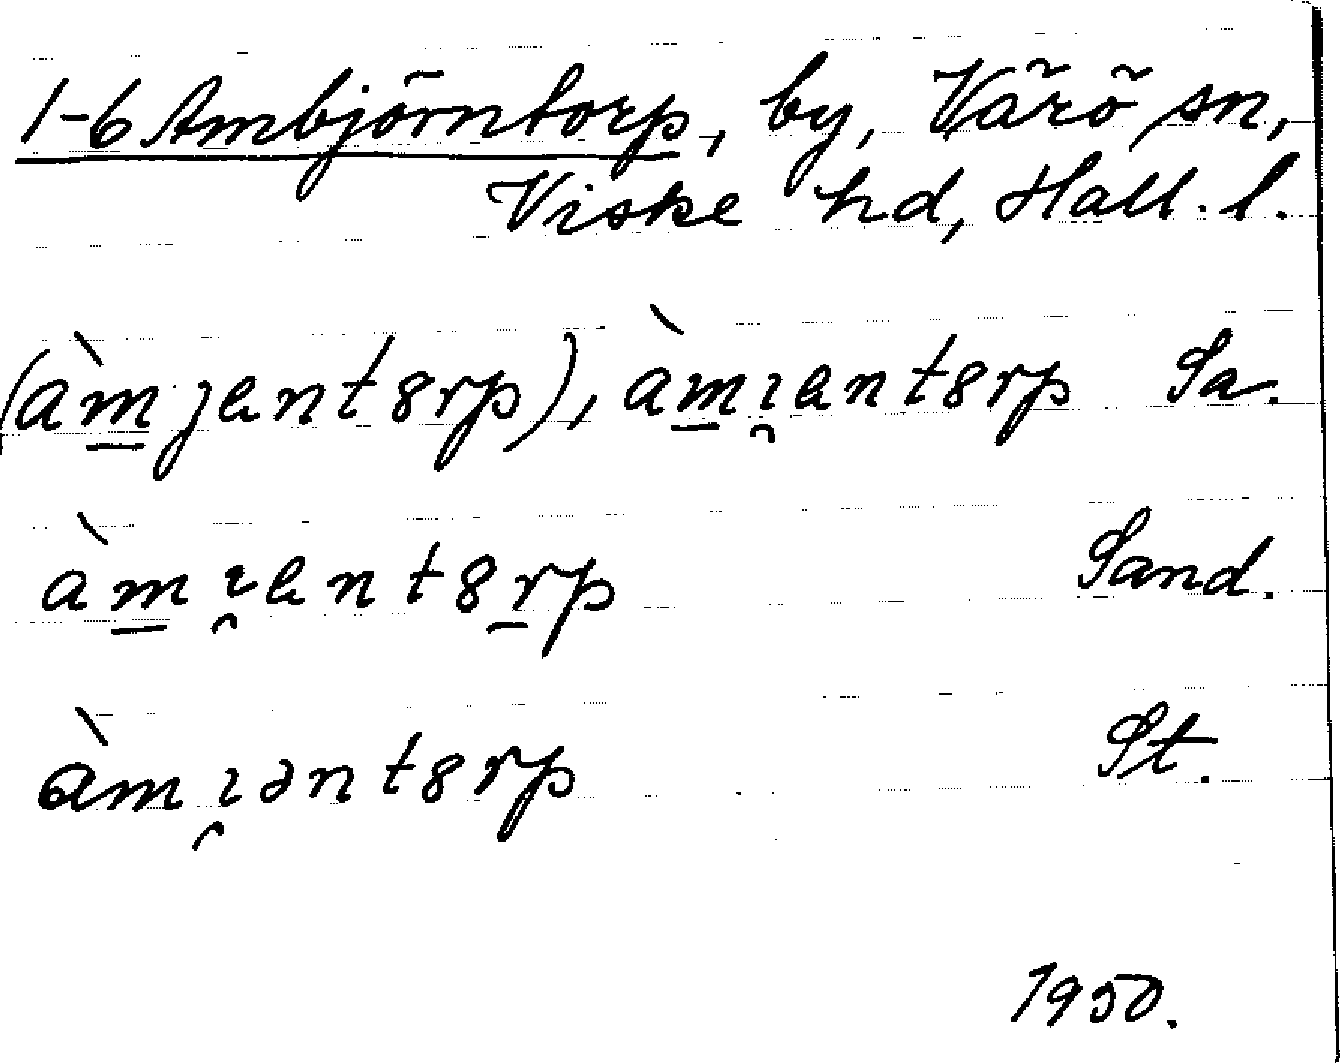 1-6 Ambjörntorp, by, Värö sn,
Viske hd, Hall. l.
(àm̲jentȣrp), àm̲ı̯entȣrp Sa.
àm̲ı̯entȣr̲p Sand.
àmı̯əntȣrp St.
1950.